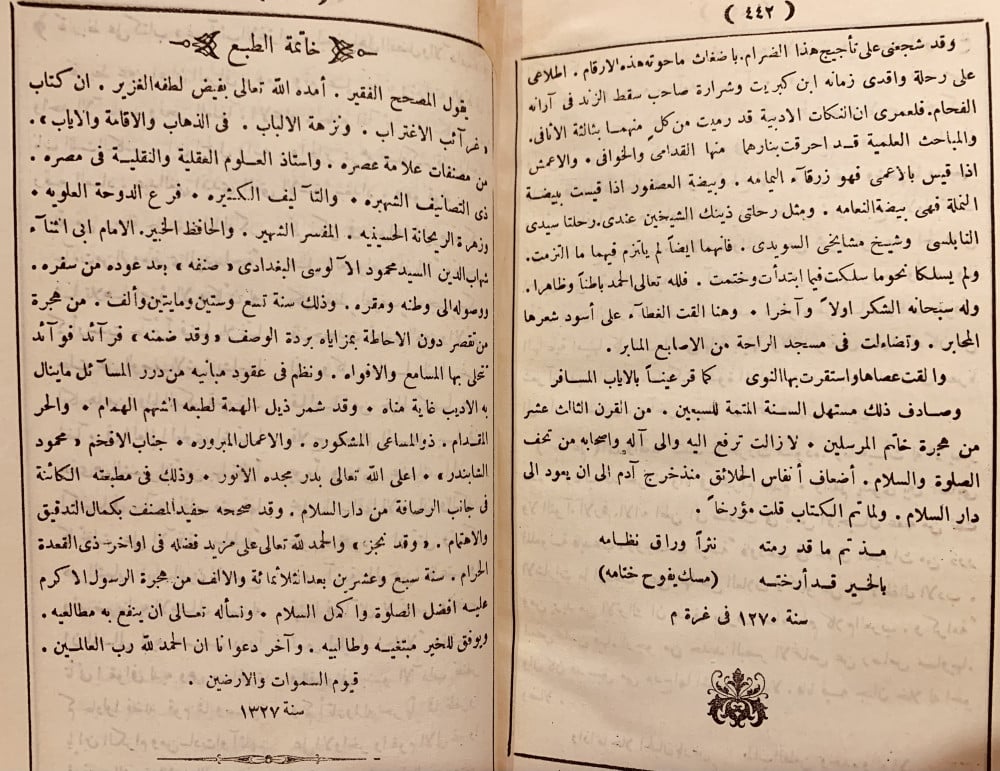 ( ٤٤٢ )
وقد شجعنى على تأجيج هذا الضرام. باضغاث ماحوته هذه الارقام . اطلاعى
على رحلة واقدى زمانه ابن كبريت وشرارة صاحب سقط الزند فى آرائه
الفحام. فلعمرى ان النكات الادبية قد رميت من كل منهما بثالثة الاثافى.
والمباحث العلمية قد احرقت بنارهما منها القدامى والخوافى . والاعمش
اذا قيس بالاعمى فهو زرقآء اليمامه . وبيضة العصفور اذا قيست ببيضة
النملة فهى بيضة النعامه . ومثل رحلتى ذينك الشيخين عندى. رحلتا سيدى
النابلسى وشيخ مشايخى السويدى . فانهما ايضاً لم يلتزم فيهما ما التزمت.
ولم يسلكا نحو ما سلكت فيما ابتدأت وختمت . فلله تعالى الحمد باطناً وظاهرا.
وله سبحانه الشكر اولاً وآخرا . وهنا القت الغطآء على أسود شعرها
المحابر . وتضاءلت فى مسجد الراحة من الاصابع المنابر .
والقت عصاها واستقرت بها النوى كما قر عيناً بالاياب المسافر
وصادف ذلك مستهل السنة المتمة للسبعين . من القرن الثالث عشر
من هجرة خاتم المرسلين . لازالت ترفع اليه والى آله واصحابه من تحف
الصلوة والسلام . أضعاف أنفاس الخلائق منذ خرج آدم الى ان يعود الى
دار السلام . ولما تم الكتاب قلت مؤرخاً .
مذ تم ما قد رمته نثراً وراق نظامه
بالخير قد أرخته (مسك يفوح ختامه)
سنة ١٢٧٠ فى غرة م
خاتمة الطبع
يقول المصحح الفقير . أمده الله تعالى بفيض لطفه الغزير . ان كتاب
«غرآئب الاغتراب . ونزهة الالباب . فى الذهاب والاقامة والاياب» .
من مصنفات علامة عصره . واستاذ العلوم العقلية والنقلية فى مصره .
ذى التصانيف الشهيره . والتآليف الكثيره . فرع الدوحة العلويه .
وزهرة الريحانة الحسينيه . المفسر الشهير . والحافظ الخبير . الامام ابى الثنآء
شهاب الدين السيد محمود الآلوسى البغدادى «صنفه» بعد عوده من سفره .
ووصوله الى وطنه ومقره . وذلك سنة تسع وستين ومايتين وألف . من هجرة
من تقصر دون الاحاطة بمزاياه بردة الوصف «وقد ضمنه» فرآئد فوآئد
تحلى بها المسامع والافواه . ونظم فى عقود مبانيه من درر المسآئل ماينال
به الاديب غاية مناه . وقد شمر ذيل الهمة لطبعه الشهم الهمام . والحر
المقدام . ذو المساعى المشكوره . والاعمال المبروره . جناب الافخم «محمود
الشابندر» . اعلى الله تعالى بدر مجده الانور . وذلك فى مطبعته الكائنة
فى جانب الرصافة من دار السلام . وقد صححه حفيد المصنف بكمال التدقيق
والاهتمام . «وقد نجز» والحمد لله تعالى على مزيد فضله فى اواخر ذى القعدة
الحرام . سنة سبع وعشرين بعد الثلاثمائة والالف من هجرة الرسول الاكرم
عليه افضل الصلوة واكمل السلام . ونسأله تعالى ان ينفع به مطالعيه .
ويوفق للخير مبتغيه وطالبيه . وآخر دعوانا ان الحمد لله رب العالمين .
قيوم السموات والارضين .
سنة ١٣٢٧